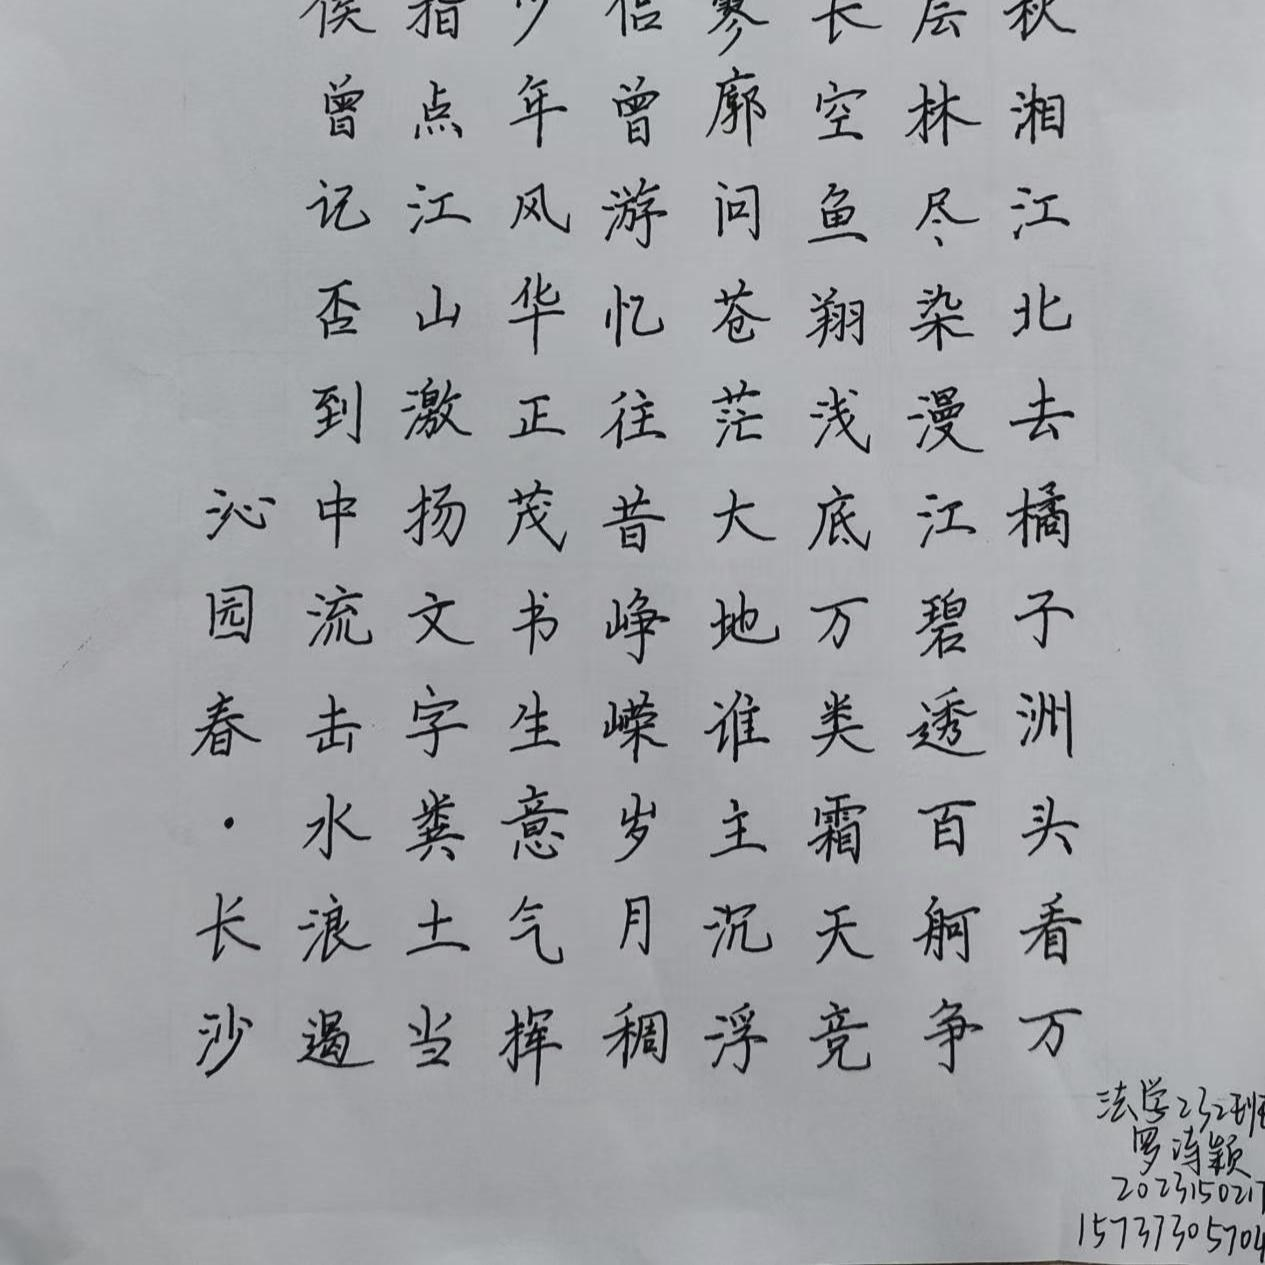 秋湘江北去橘子洲头看万
层林尽染漫江碧透百舸争
长空鱼翔浅底万类霜天竞
寥廓问苍茫大地谁主沉浮
侣曾游忆往昔峥嵘岁月稠
少年风华正茂书生意气挥
指点江山激扬文字粪土当
侯曾记否到中流击水浪遏
沁园春·长沙
法学232班
罗诗颖
2023150217
15737305704